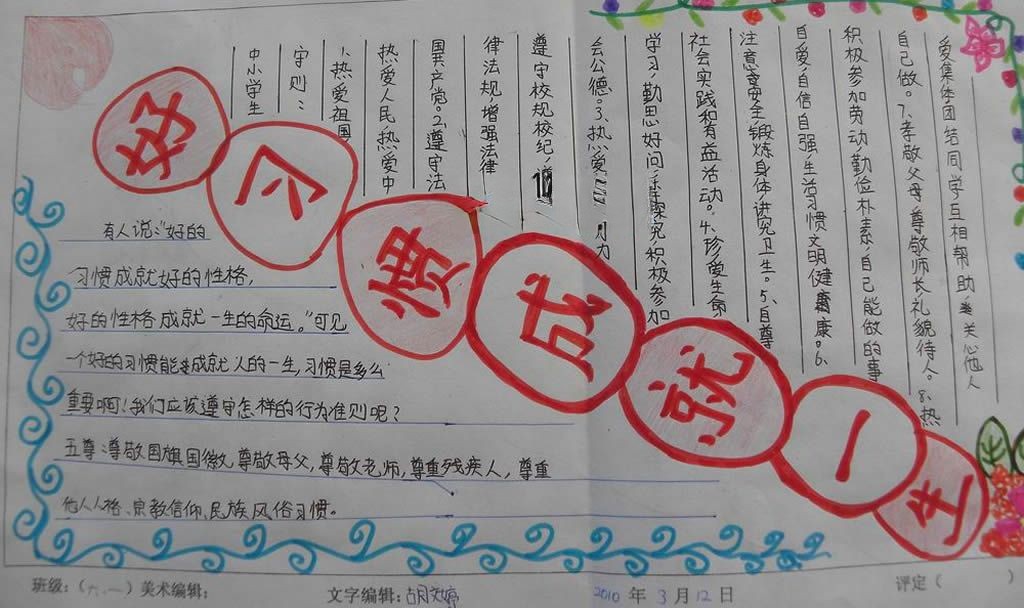 好习惯成就一生
有人说:“好的
习惯成就好的性格,
好的性格成就一生的命运。”可见
一个好的习惯能成就人的一生,习惯是多么
重要啊!我们应该遵守怎样的行为准则呢?
五尊:尊敬国旗国徽,尊敬母父,尊敬老师,尊重残疾人,尊重
他人人格、宗教信仰、民族风俗习惯。
中小学生
守则:
1、热爱祖国
热爱人民热爱中
国共产党。2、遵守法
律法规,增强法律
遵守校规校纪,
会公德。3、热爱
学习,勤思好问,探究,积极参加
社会实践和有益活动。4、珍爱生命
注意安全,锻炼身体,讲究卫生。5、自尊
自爱,自信自强,生活习惯文明健康。6、
积极参加劳动,勤俭朴素,自己能做的事
自己做。7、孝敬父母,尊敬师长,礼貌待人。8、热
爱集体,团结同学,互相帮助,关心他人
班级:(六.一)美术编辑:
文字编辑:胡文婷
2010年3月12日
评定( )